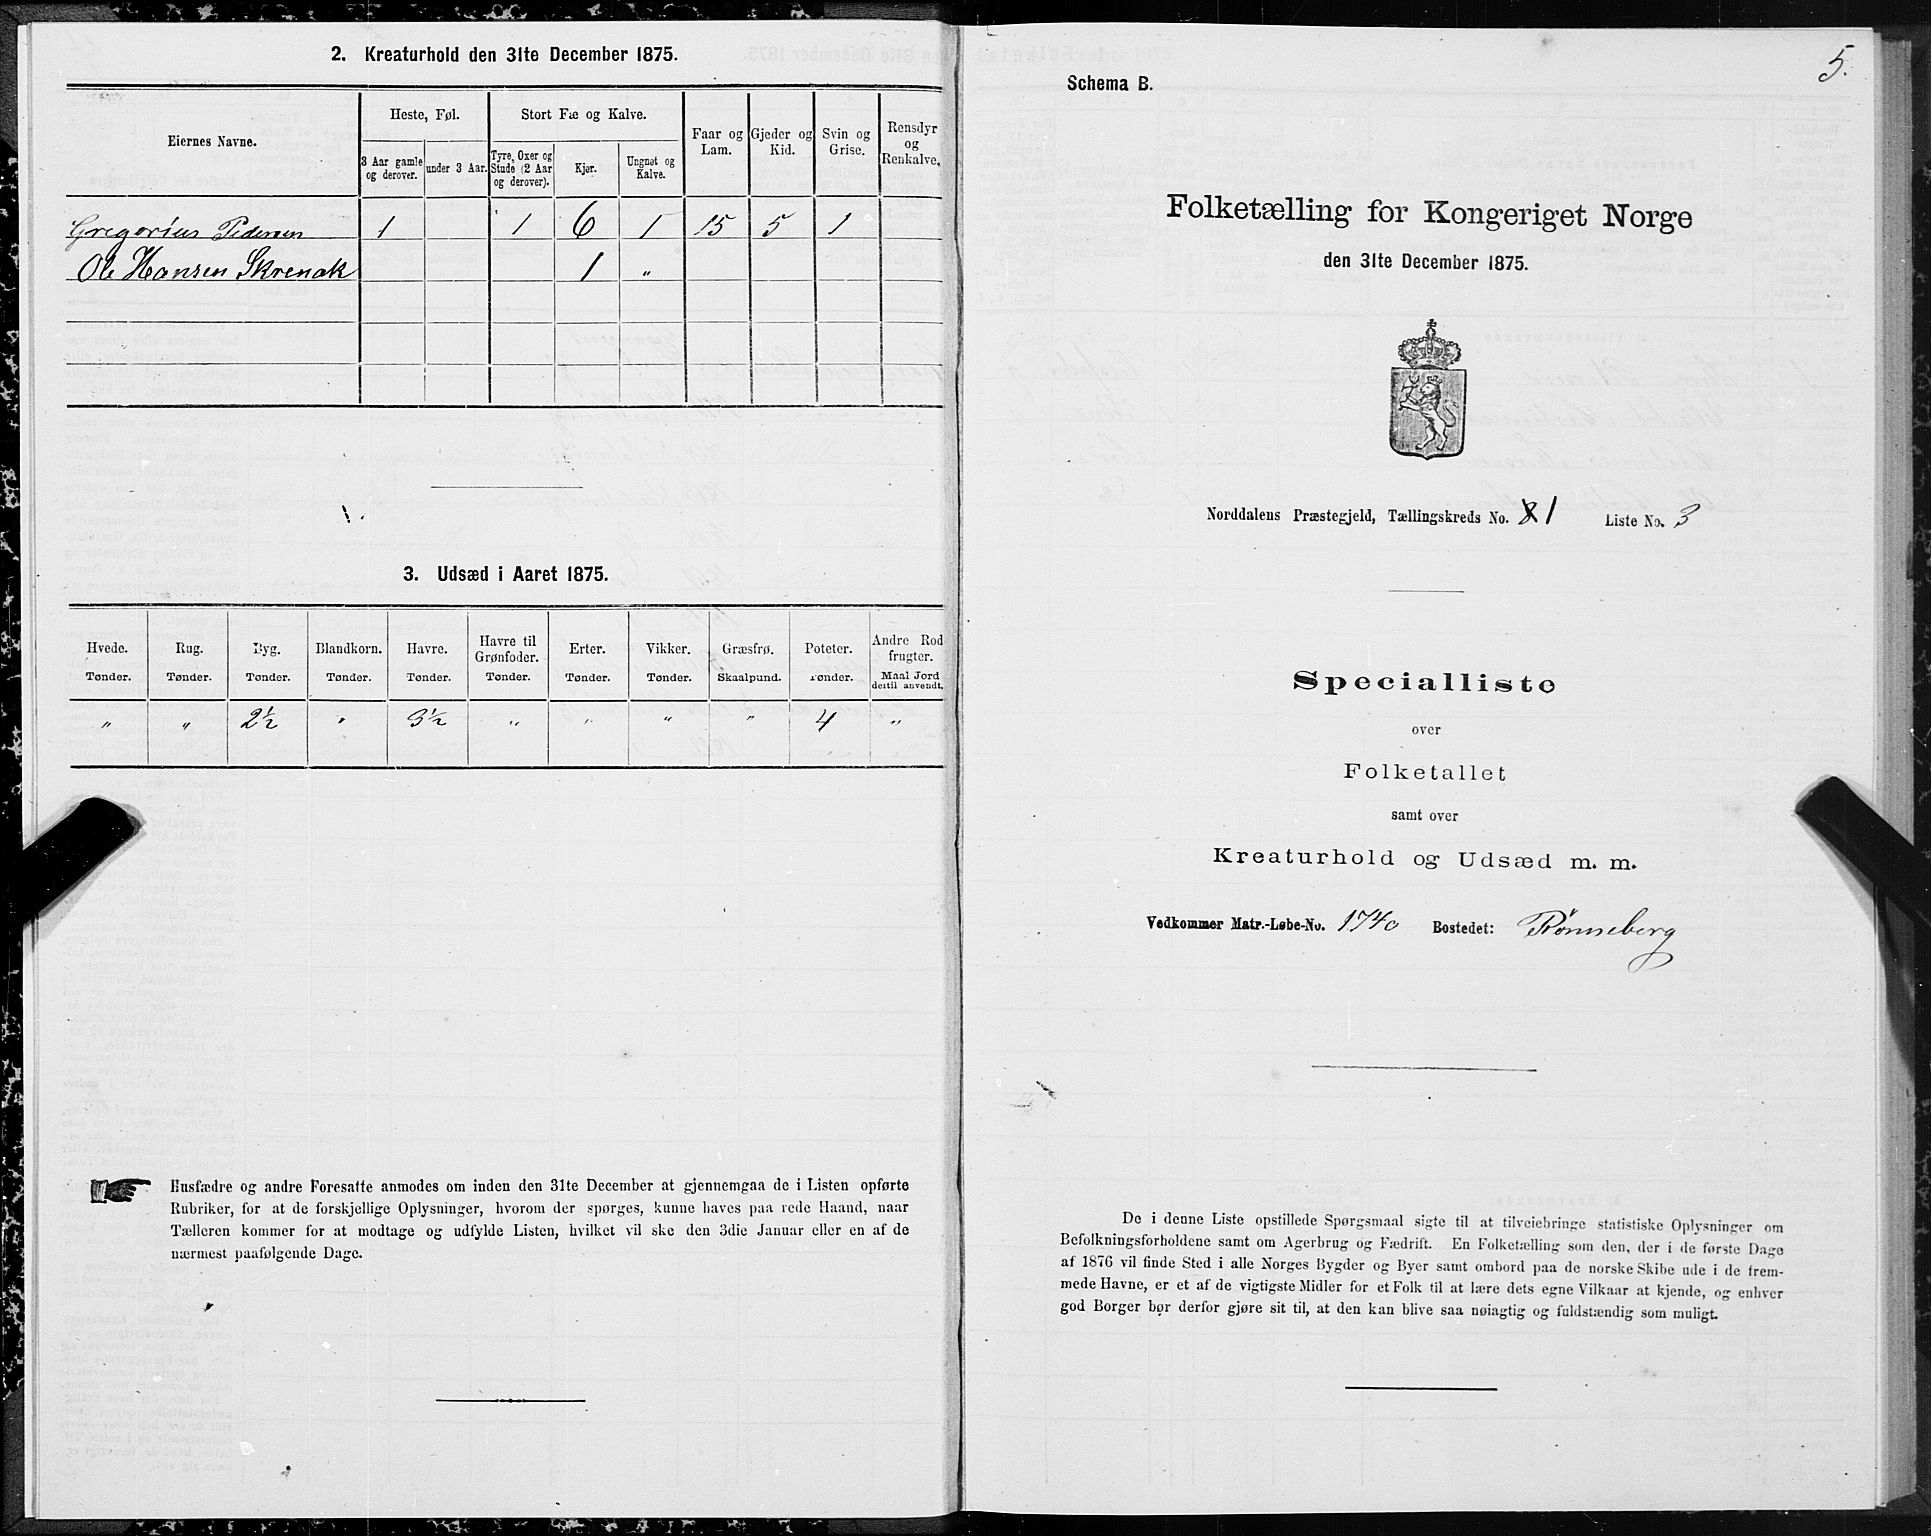 2. Kreaturhold den 31te December 1875.
Eiernes Navne.
Heste, Føl.
Stort Fæ og Kalve.
Faar og Lam.
Gjeder og Kid.
Svin og Grise.
Rensdyr og Renkalve.
3 Aar gamle og derover.
under 3 Aar.
Tyre, Oxer og Stude (2 Aar og derover).
Kjør.
Ungnøt og Kalve.
Gregorius Pedersen 1 1 6 1 15 5 1
Ole Hansen Skrenak 1 "
3. Udsæd i Aaret 1875.
Hvede. Rug. Byg. Blandkorn. Havre. Havre til Grønfoder. Erter. Vikker. Græsfrø. Poteter. Andre Rodfrugter.
Tønder. Tønder. Tønder. Tønder. Tønder. Tønder. Tønder. Tønder. Skaalpund. Tønder. Maal Jord dertil anvendt.
" " 2½ " 3½ " " " " 4 "
Husfædre og andre Foresatte anmodes om inden den 31te December at gjennemgaa de i Listen opførte
Rubriker, for at de forskjellige Oplysninger, hvorom der spørges, kunne haves paa rede Haand, naar
Tælleren kommer for at modtage og udfylde Listen, hvilket vil ske den 3die Januar eller en af de
nærmest paafølgende Dage.
5.
Schema B.
Folketælling for Kongeriget Norge
den 31te December 1875.
Norddalens Præstegjeld, Tællingskreds No. 1 Liste No. 3
Specialliste
over
Folketallet
samt over
Kreaturhold og Udsæd m. m.
Vedkommer Matr.-Løbe-No. 174c Bostedet: Rønneberg
De i denne Liste opstillede Spørgsmaal sigte til at tilveiebringe statistiske Oplysninger om
Befolkningsforholdene samt om Agerbrug og Fædrift. En Folketælling som den, der i de første Dage
af 1876 vil finde Sted i alle Norges Bygder og Byer samt ombord paa de norske Skibe ude i de frem-
mede Havne, er et af de vigtigste Midler for et Folk til at lære dets egne Vilkaar at kjende, og enhver
god Borger bør derfor gjøre sit til, at den kan blive saa nøiagtig og fuldstændig som muligt.